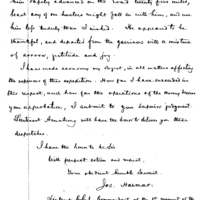 him safely advanced on the road twenty five miles,
least any of our hunters might fall in with him, and use
him ill. He appeared to be
thankful, and departed from the garrison with a mixture
of sorrow, gratitude and joy.
I have used economy my object, in all matters affecting
the expenses of this expedition. How far I have succeeded in
this respect, and how far the operations of the army deserve
your approbation, I submit to your superior judgment.
Lieutenant Armstrong will have the honor to deliver you these
despatches.
I have the honor to be, Sir
with perfect esteem and respect,
Your obedient humble servant.
Jos. Harmar.
Lieut. Col. Commandant of the 1st